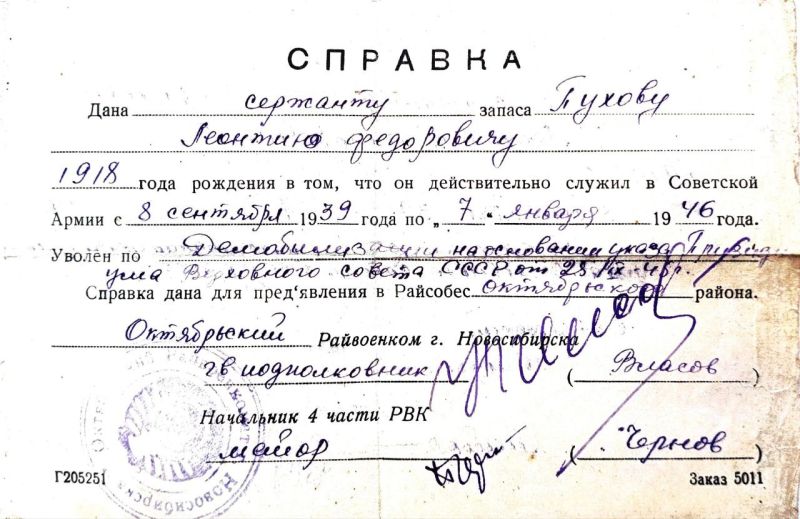 СПРАВКА
Дана сержанту запаса Пухову
Леонтию Федоровичу
1918 года рождения в том, что он действительно служил в Советской
Армии с 8 сентября 1939 года по „ 7 " января 1946 года.
Уволен по Демобилизации на основании указа Президи
ума Верховного совета СССР от 25 IX-45г.
Справка дана для пред'явления в Райсобес Октябрьского района.
Октябрьский Райвоенком г. Новосибирска
гв подполковник (Власов)
Начальник 4 части РВК
майор (Чернов)
Новосибирск
Г205251 Заказ 5011